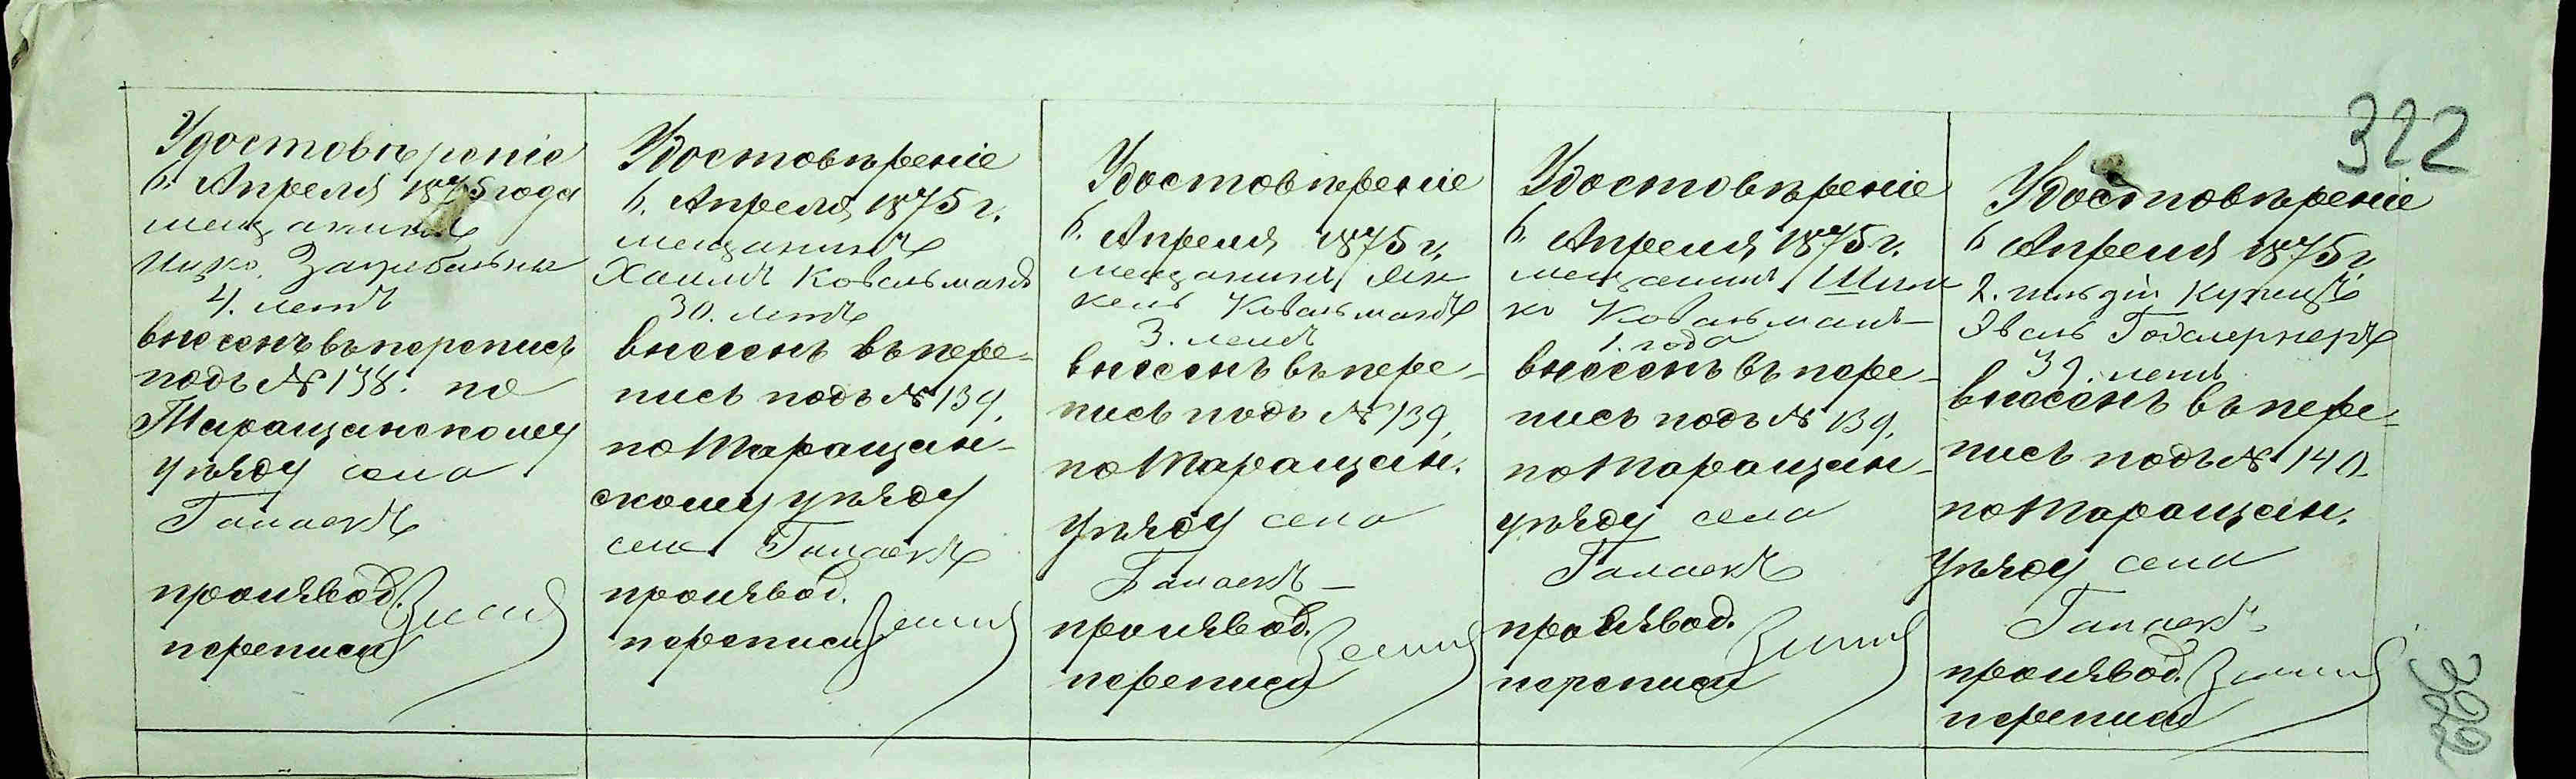 322
Удостовѣреніе
6. Апреля 1875 года
мещанинъ
Ицко
4. летъ
внесенъ въ перепись
подъ № 138. по
Таращанскому
уѣзду села
Галаекъ
производ.
переписи
Удостовѣреніе
6. Апреля 1875 г.
мещанинъ
Хаимъ Ковальманъ
30. летъ
внесенъ въ пере-
пись подъ № 139.
по Таращан-
скому уѣзду
села Галаекъ
производ.
переписи
Удостовѣреніе
6. Апреля 1875 г.
мещанинъ Ян
кель Ковальманъ
3. летъ
внесенъ въ пере-
пись подъ № 139.
по Таращан.
уѣзду села
Галаекъ
производ.
переписи
Удостовѣреніе
6. Апреля 1875 г.
мещанинъ Шим
ко Ковальманъ
1. года
внесенъ въ пере-
пись подъ № 139.
по Таращан-
уѣзду села
Галаекъ
производ.
переписи
Удостовѣреніе
6 Апреля 1875 г.
2. гильдіи Купецъ
39. летъ
внесенъ въ пере-
пись подъ № 140.
по Таращан.
уѣзду села
Галаекъ
производ.
переписи